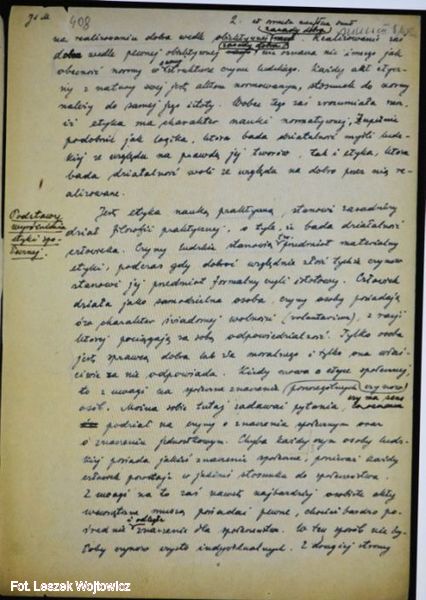 J. † M.
408
2.
w sensie
zasady dobra
na realizowaniu dobra wedle obiektywnej
zasady dobra
dobra wedle pewnej obiektywnej nie oznacza nic innego jak
obecność normy w strukturze czynu ludzkiego. Każdy akt etycz-
ny z natury swej jest aktem normowanym, stosunek do normy
należy do samej jego istoty. Wobec tego zaś zrozumiała rzecz,
iż etyka ma charakter nauki normatywnej. Zupełnie
podobnie jak logika, która bada działalność myśli ludz-
kiej ze względu na prawdę jej tworów, tak i etyka, która
bada działalność woli ze względu na dobro przez nią re-
alizowane.
Podstawy
wyróżnienia
etyki spo-
łecznej.
Jest etyka nauką praktyczną, stanowi zasadniczy
dział filozofii praktycznej, o tyle, że bada działalność
człowieka. Czyny ludzkie stanowią przedmiot materialny
etyki, podczas gdy dobroć względnie złość tychże czynów
stanowi jej przedmiot formalny czyli istotowy. Człowiek
działa jako samodzielna osoba, czyny osoby posiadają
ów charakter świadomej wolności (voluntarium), z racji
której pociągają za sobą odpowiedzialność. Tylko osoba
jest sprawcą dobra lub zła moralnego i tylko ona właś-
ciwie za nie odpowiada. Kiedy mowa o etyce społecznej,
to z uwagi na społeczne znaczenie (poszczególnych czynów)
osób. Można sobie tutaj zadawać pytania, czy ma sens
podział na czyny o znaczeniu społecznym oraz
o znaczeniu jednostkowym. Chyba każdy czyn osoby ludz-
kiej posiada jakieś znaczenie społeczne, ponieważ każdy
człowiek pozostaje w jakimś stosunku do społeczeństwa.
Z uwagi na to zaś nawet najbardziej osobiste akty
wewnętrzne muszą posiadać pewne, choćby bardzo po-
średnie i odległe znaczenie dla społeczeństwa. W ten sposób nie by-
łoby czynów czysto indywidualnych. Z drugiej strony
Fot. Leszek Wojtowicz